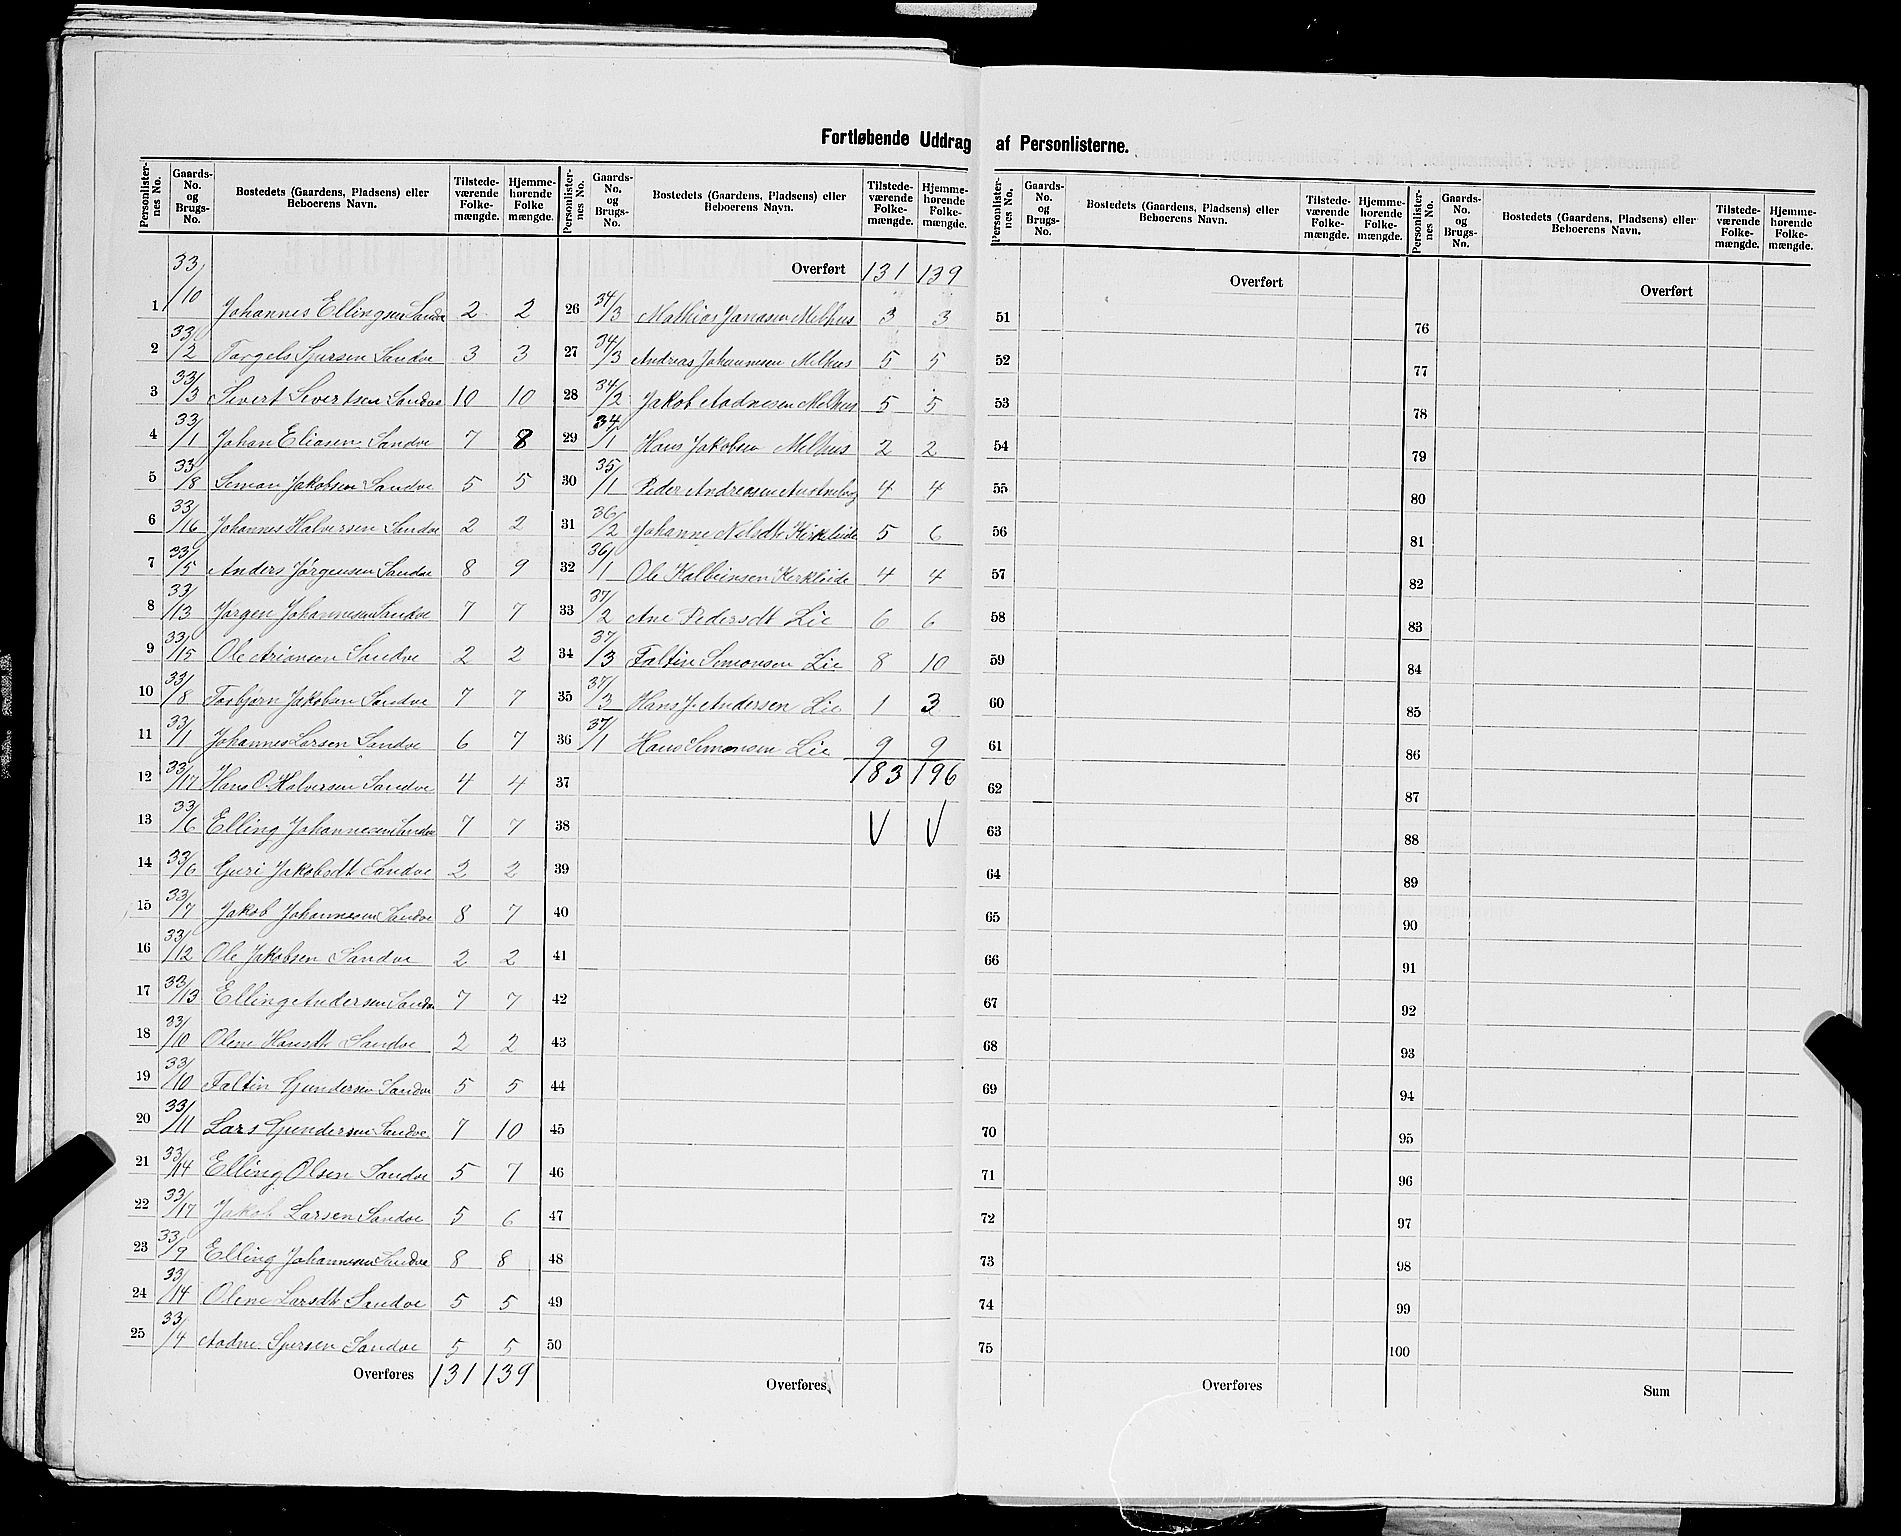 Fortløbende Uddrag af Personlisterne.
Personlister-nes No. | Gaards-No. og Brugs-No. | Bostedets (Gaardens, Pladsens) eller Beboerens Navn. | Tilstede-værende Folke-mængde. | Hjemme-hørende Folke mængde.
1 33/10 Johannes Ellingsen Sandve 2 2
2 33/2 Sandve 3 3
3 33/3 Sivert Sivertsen Sandve 10 10
4 33/1 Johan Eliasen Sandve 7 8
5 33/8 Simon Jakobsen Sandve 5 5
6 33/16 Johannes Halversen Sandve 2 2
7 33/5 Anders Jørgensen Sandve 8 9
8 33/13 Jørgen Johannesen Sandve 7 7
9 33/15 Ole Sandve 2 2
10 33/8 Torbjørn Jakobsen Sandve 7 7
11 33/1 Johannes Larsen Sandve 6 7
12 33/17 Hans O. Halversen Sandve 4 4
13 33/6 Elling Johannesen Sandve 7 7
14 33/6 Guri Jakobsdt Sandve 2 2
15 33/7 Jakob Johannesen Sandve 8 7
16 33/12 Ole Jakobsen Sandve 2 2
17 33/13 Elling Andersen Sandve 7 7
18 33/10 Olene Hansdt Sandve 2 2
19 33/10 Faltin Gundersen Sandve 5 5
20 33/11 Lars Gundersen Sandve 7 10
21 33/14 Elling Olsen Sandve 5 7
22 33/17 Jakob Larsen Sandve 5 6
23 33/9 Elling Johannesen Sandve 8 8
24 33/14 Olene Larsdt Sandve 5 5
25 33/4 Aadne Sjursen Sandve 5 5
Overføres 131 139
Personlister-nes No. | Gaards-No. og Brugs-No. | Bostedets (Gaardens, Pladsens) eller Beboerens Navn. | Tilstede-værende Folke-mængde. | Hjemme-hørende Folke-mængde.
Overført 131 139
26 34/3 Mathias Jonassen Melhus 3 3
27 34/3 Andreas Johannesen Melhus 5 5
28 34/2 Jakob Aadnesen Melhus 5 5
29 34/1 Hans Jakobsen Melhus 2 2
30 35/1 Peder Andreasen 4 4
31 36/2 Johanne Nelsdt Kirkleide 5 6
32 36/1 Ole Kolbeinsen Kirkleide 4 4
33 37/2 Ane Pedersdt Lie 6 6
34 37/3 Faltin Simonsen Lie 8 10
35 37/3 Hans J. Andersen Lie 1 3
36 37/1 Hans Simonsen Lie 9 9
37 183 196
38 V V
39
40
41
42
43
44
45
46
47
48
49
50
Overføres
Personlister-nes No. | Gaards-No. og Brugs-No. | Bostedets (Gaardens, Pladsens) eller Beboerens Navn. | Tilstede-værende Folke-mængde. | Hjemme-hørende Folke-mængde.
Overført
51
52
53
54
55
56
57
58
59
60
61
62
63
64
65
66
67
68
69
70
71
72
73
74
75
Overføres
Personlister-nes No. | Gaards-No. og Brugs-No. | Bostedets (Gaardens, Pladsens) eller Beboerens Navn. | Tilstede-værende Folke-mængde. | Hjemme-hørende Folke-mængde.
Overført
76
77
78
79
80
81
82
83
84
85
86
87
88
89
90
91
92
93
94
95
96
97
98
99
100
Sum